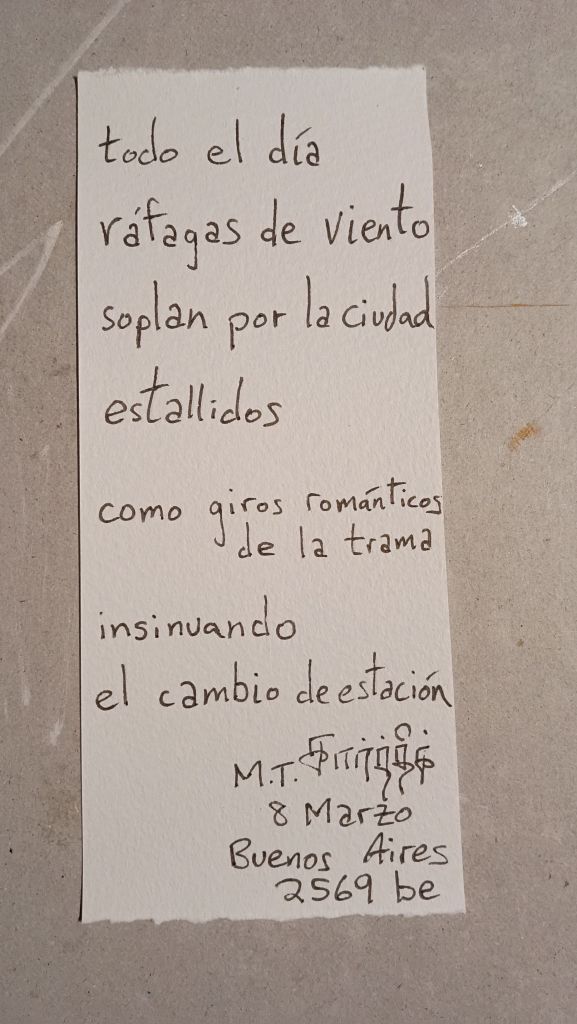 todo el día
ráfagas de viento
soplan por la ciudad
estallidos
como giros románticos
de la trama
insinuando
el cambio de estación
M.T.
8 Marzo
Buenos Aires
2569 be